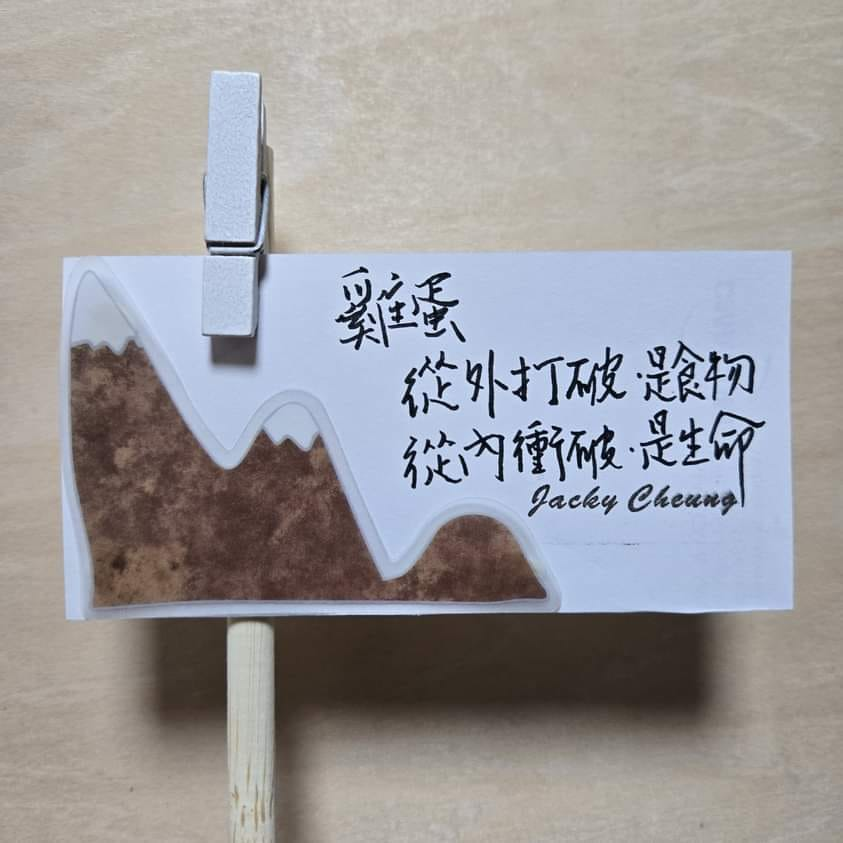 雞蛋
從外打破·是食物
從內衝破·是生命
Jacky Cheung